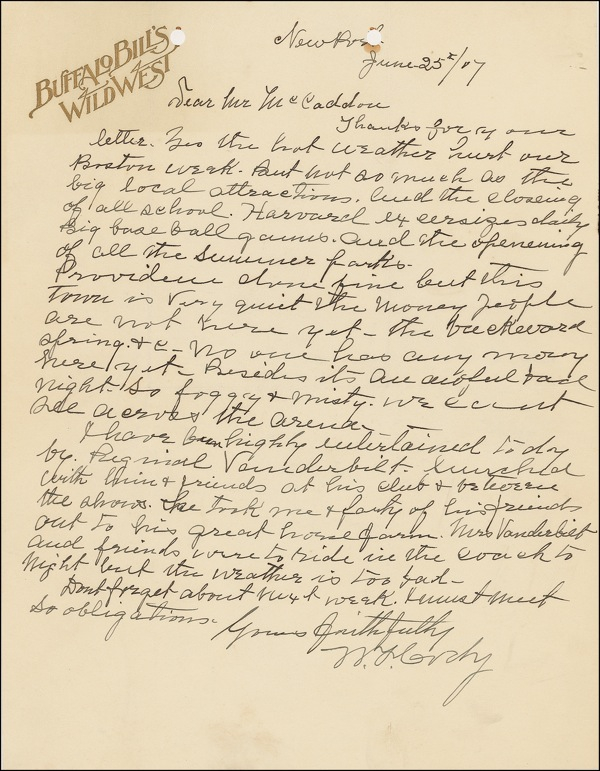 BUFFALO BILL'S
WILD WEST
June 25"/07
Dear Mr McCaddon
Thanks for your
letter. Yes the hot weather hurt our
Boston week. But not so much as the
big local attractions. And the closing
of all school. Harvard exersizes daily
Big base ball games. And the openening
of all the summer parks.
Providence done fine but this
town is very quiet the money people
are not here yet – the backward
spring. &c – No one has any money
here yet – Besides its an awful bad
night. So foggy & misty. We cant
see across the arena.
I have been highly entertained to day
by. Reginal Vanderbilt – lunched
with him & friends at his club & between
the shows. He took me & party of his friends
out to his great horse farm. Mrs Vanderbilt
and friends were to ride in the coach to
night but the weather is too bad –
Dont forget about next week. I must meet
So obligations.
Yours faithfully
W. F. Cody